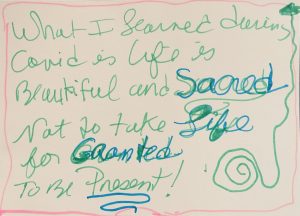 What I learned during
Covid is Life is
Beautiful and Sacred
Not to take Life
for Granted
To Be Present!